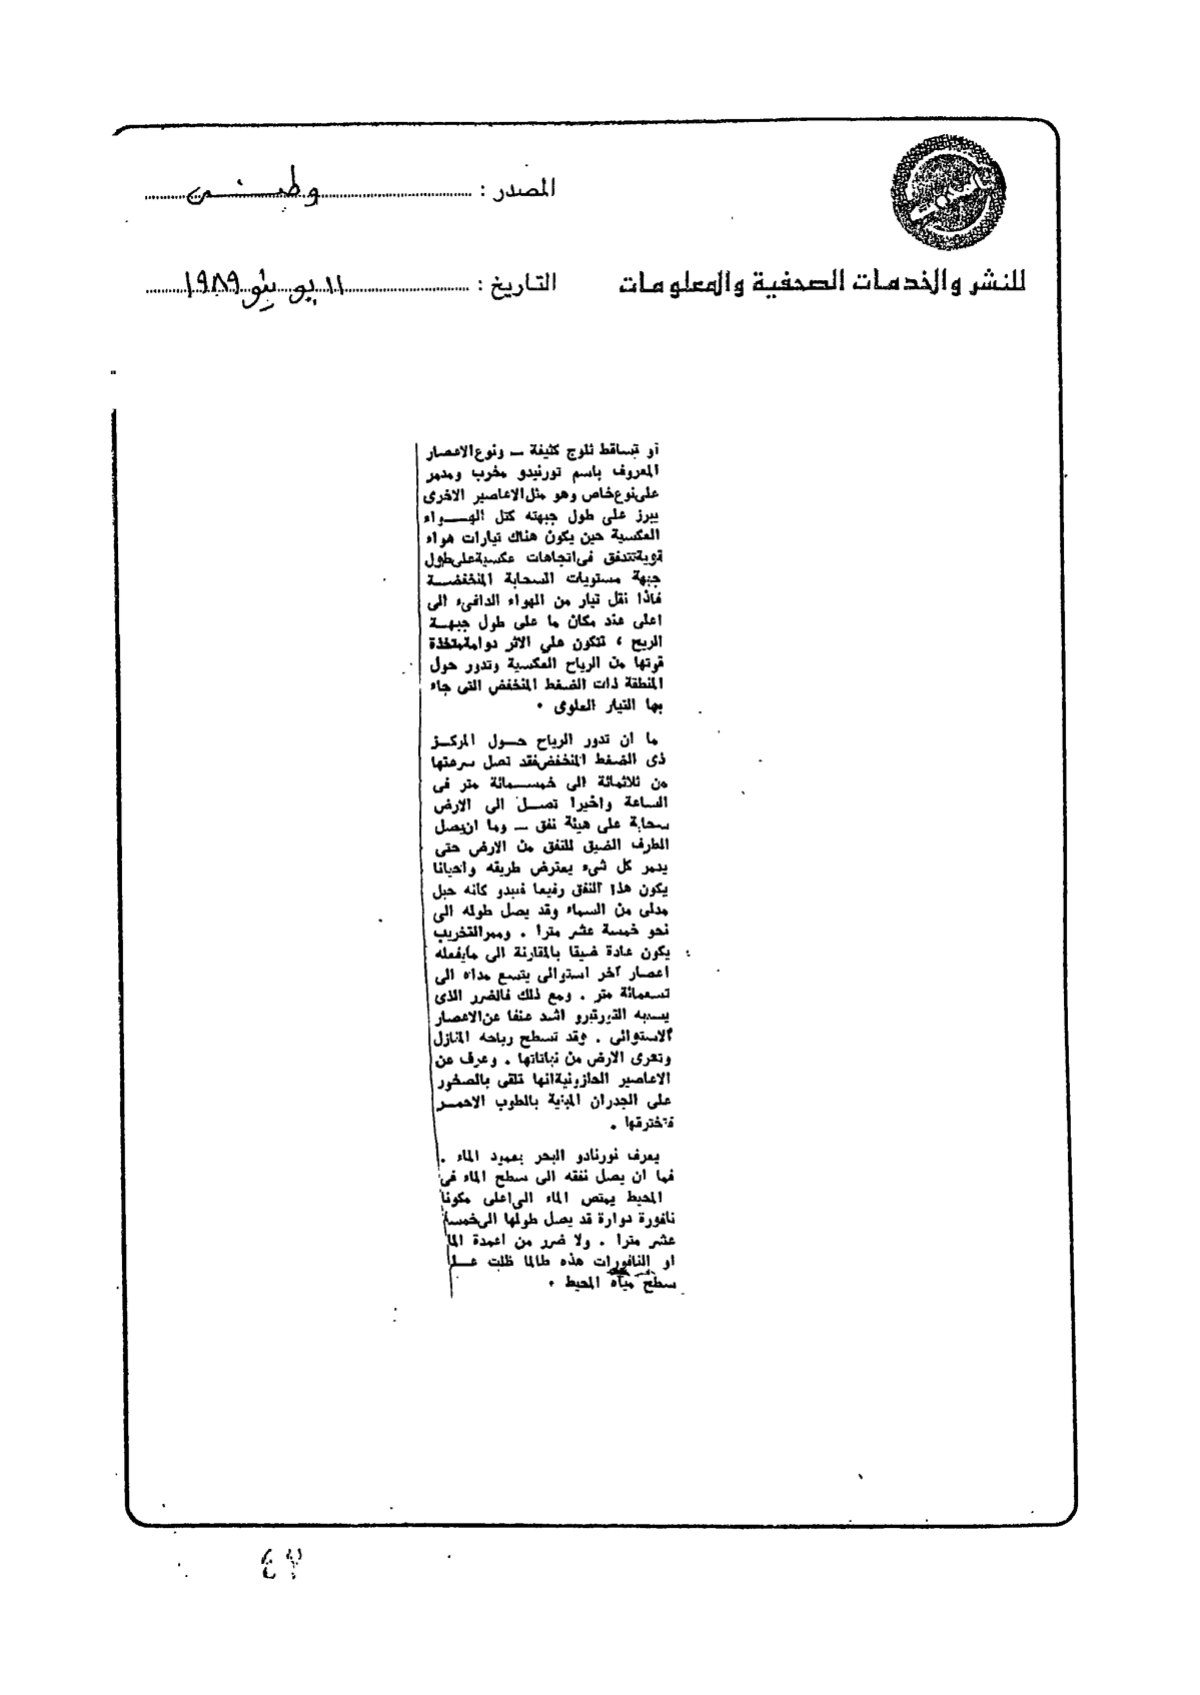 المصدر : وطنى
للنشر والخدمات الصحفية والمعلومات
التاريخ : ١١ يونيو ١٩٨٩
أو تساقط ثلوج كثيفة ــ ونوع الاعصار
المعروف باسم تورنيدو مخرب ومدمر
على نوع خاص وهو مثل الاعاصير الاخرى
يبرز على طول جبهته كتل الهـــواء
العكسية حين يكون هناك تيارات هواء
قوية تتدفق فى اتجاهات عكسية على طول
جبهة مستويات السحابة المنخفضـــة
فاذا نقل تيار من الهواء الدافىء الى
اعلى عند مكان ما على طول جبهــة
الريح ، تتكون على الاثر دوامة متخذة
قوتها من الرياح العكسية وتدور حول
المنطقة ذات الضغط المنخفض التى جاء
بها التيار العلوى .
ما ان تدور الرياح حــول المركــز
ذى الضغط المنخفض فقد تصل سرعتها
من ثلاثمائة الى خمســمائة متر فى
الساعة واخيرا تصــل الى الارض
سحابة على هيئة نفق ــ وما ان يصل
الطرف الضيق للنفق من الارض حتى
يدمر كل شىء يعترض طريقه واحيانا
يكون هذا النفق رفيعا فيبدو كأنه حبل
مدلى من السماء وقد يصل طوله الى
نحو خمسة عشر مترا . وممر التخريب
يكون عادة ضيقا بالمقارنة الى ما يفعله
اعصار آخر استوائى يتسع مداه الى
تسعمائة متر . ومع ذلك فالضرر الذى
يسببه اشد عنفا عن الاعصار
الاستوائى . وقد تسطح رياحه المنازل
وتعرى الارض من نباتاتها . وعرف عن
الاعاصير الحلزونية انها تلقى بالصخور
على الجدران المبنية بالطوب الاحمــر
فتخترقها .
يعرف نورنادو البحر بعمود الماء .
فما ان يصل نفقه الى سطح الماء فى
المحيط يمتص الماء الى اعلى مكونا
نافورة دوارة قد يصل طولها الى خمسة
عشر مترا . ولا ضرر من اعمدة الما
او النافورات هذه طالما ظلت عــلـ
سطح مياه المحيط .